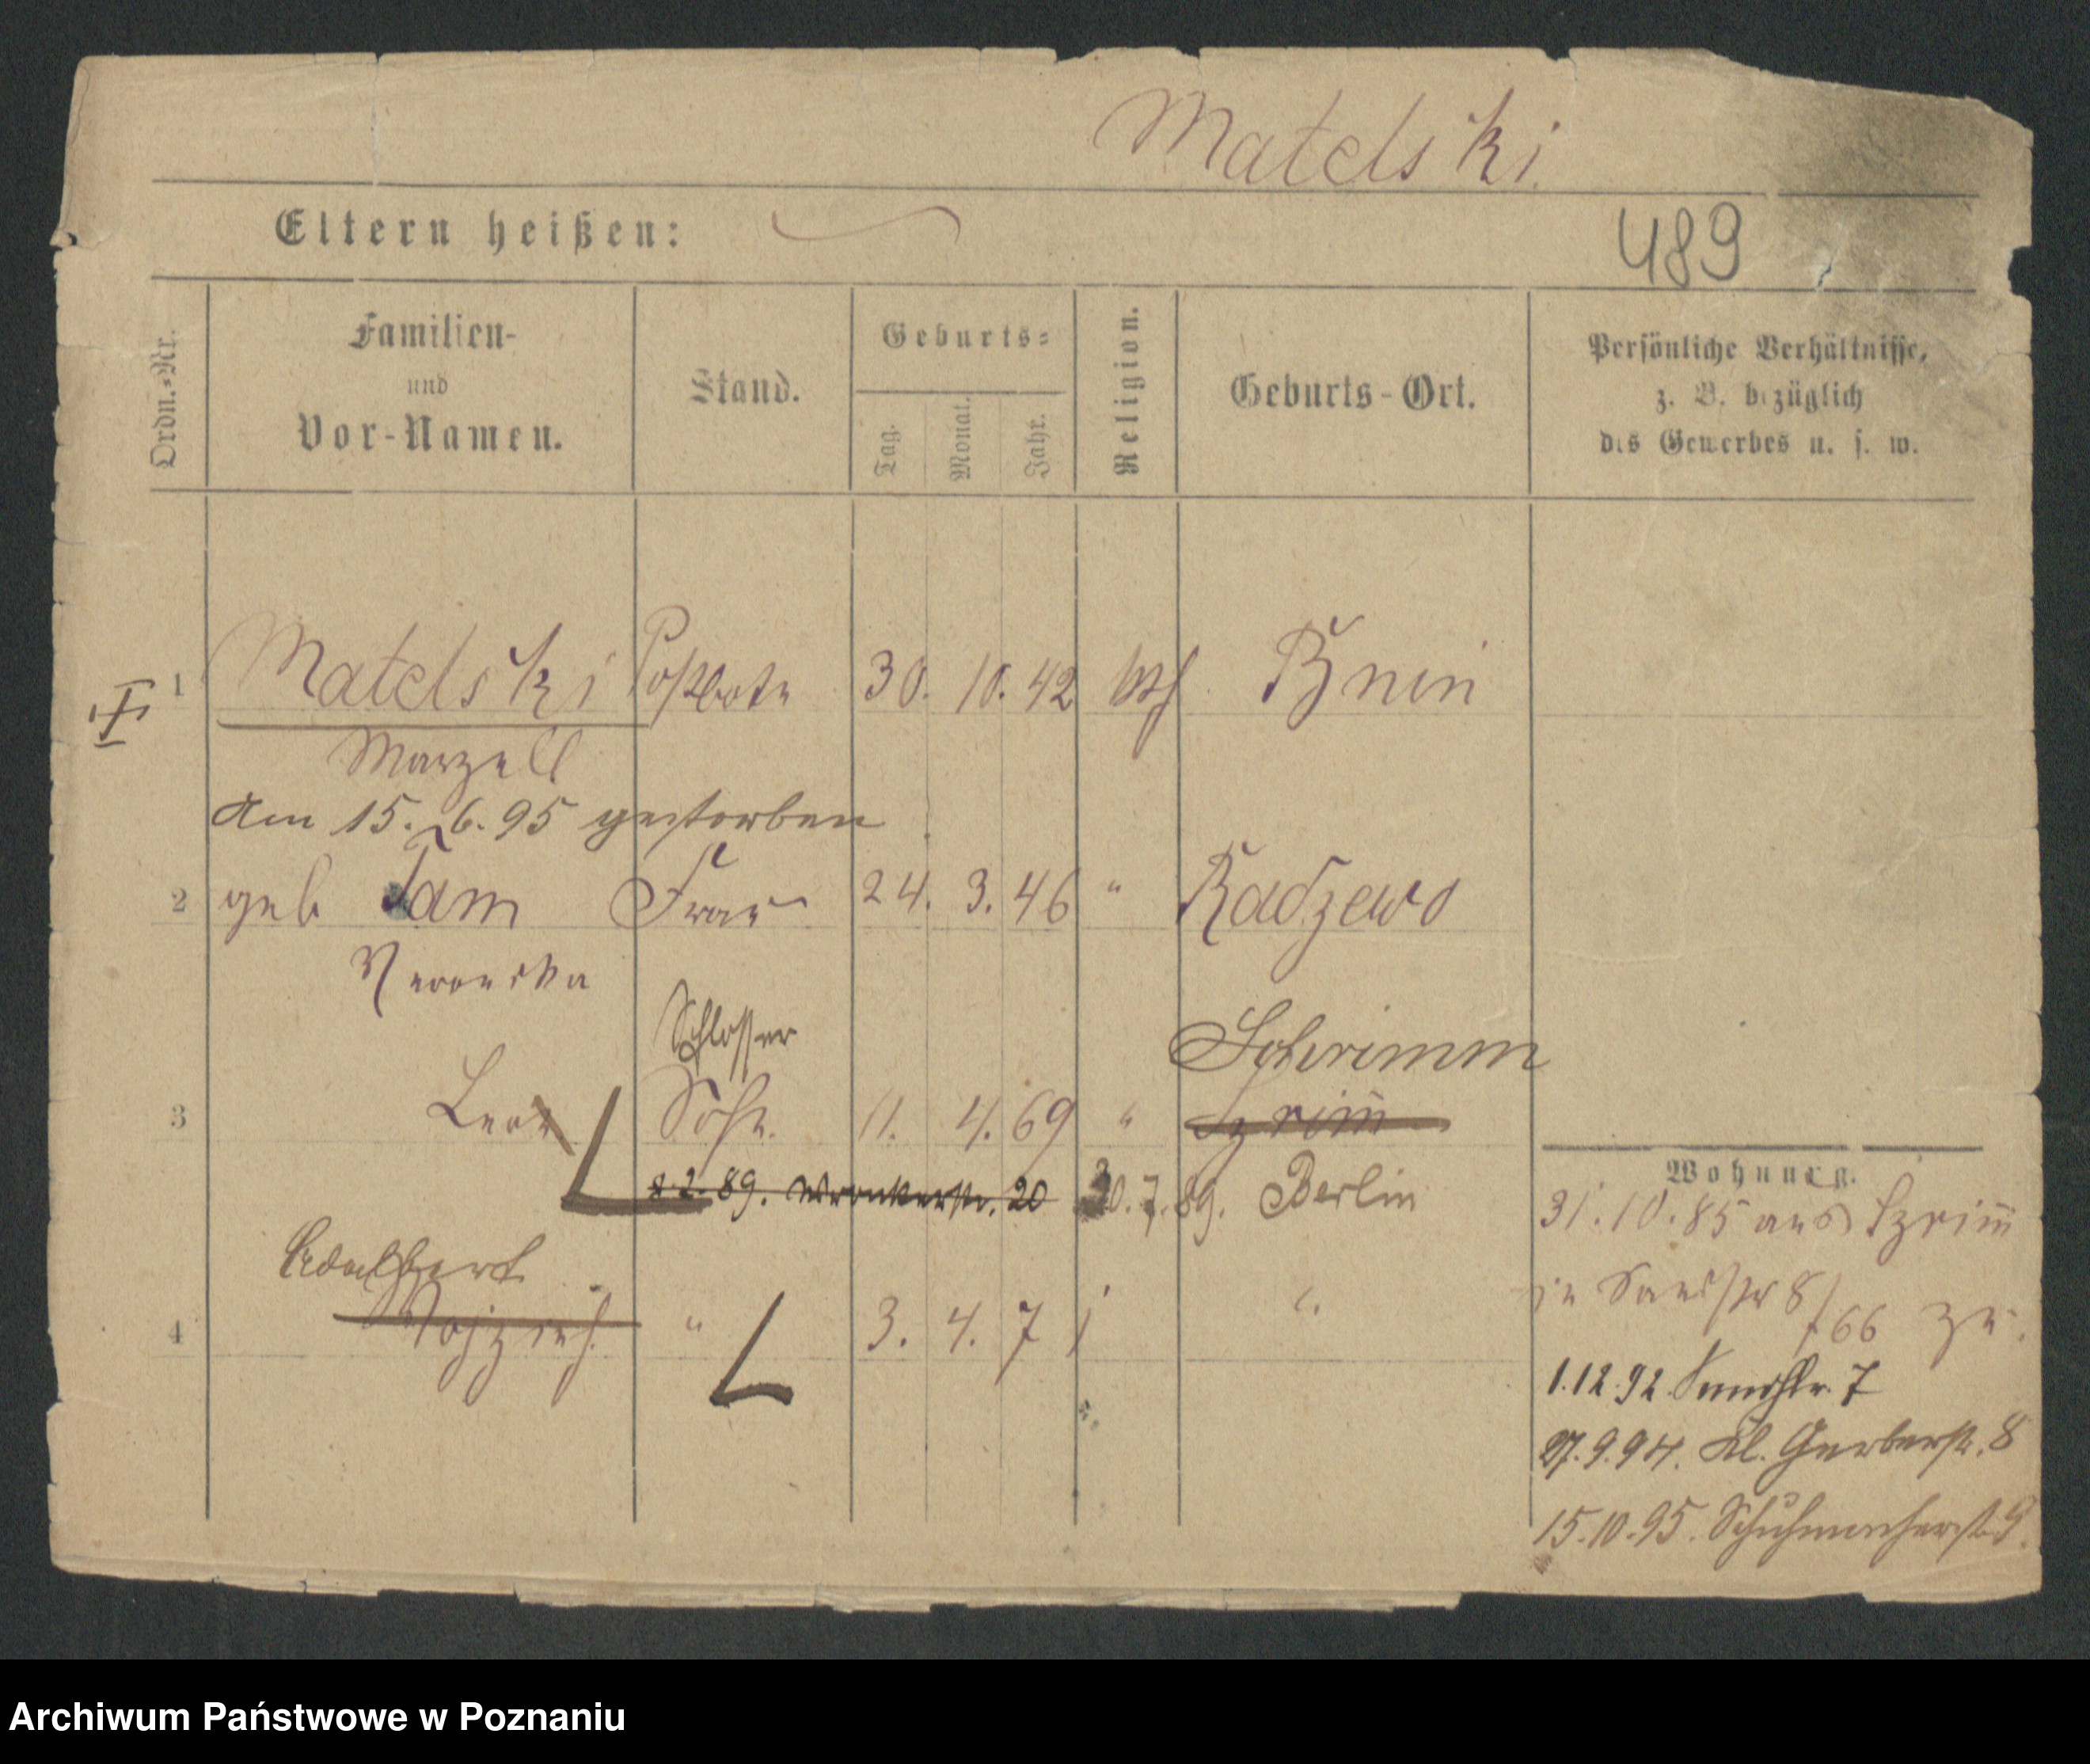 Matelski
Eltern heißen:
489
Ordn.-Nr.
Familien-
und
Vor-Namen.
Stand.
Geburts-
Tag.
Monat.
Jahr.
Religion.
Geburts-Ort.
Persönliche Verhältnisse,
z. B. bezüglich
des Gewerbes u. s. w.
I
1 Matelski Postbote 30. 10. 42 kth Bnin
Marzell
Am 15. 6. 95 gestorben
2 geb Tam Frau 24. 3. 46 " Radzewo
Veronika
Schlosser Schrimm
3 Leon Sohn 11. 4. 69 " Szrim̄
8.2.89. Wronkerstr. 20 30.7.89. Berlin
Adalbert
4 " 3. 4. 71 "
Wohnung.
31.10.85 aus Szrim̄
in Sandstr 8
/66 zu.
1.12.92. Sandstr. 7
27.9.94. Kl. Gerberstr. 8
15.10.95. Schuhmacherstr. 9.
Archiwum Państwowe w Poznaniu